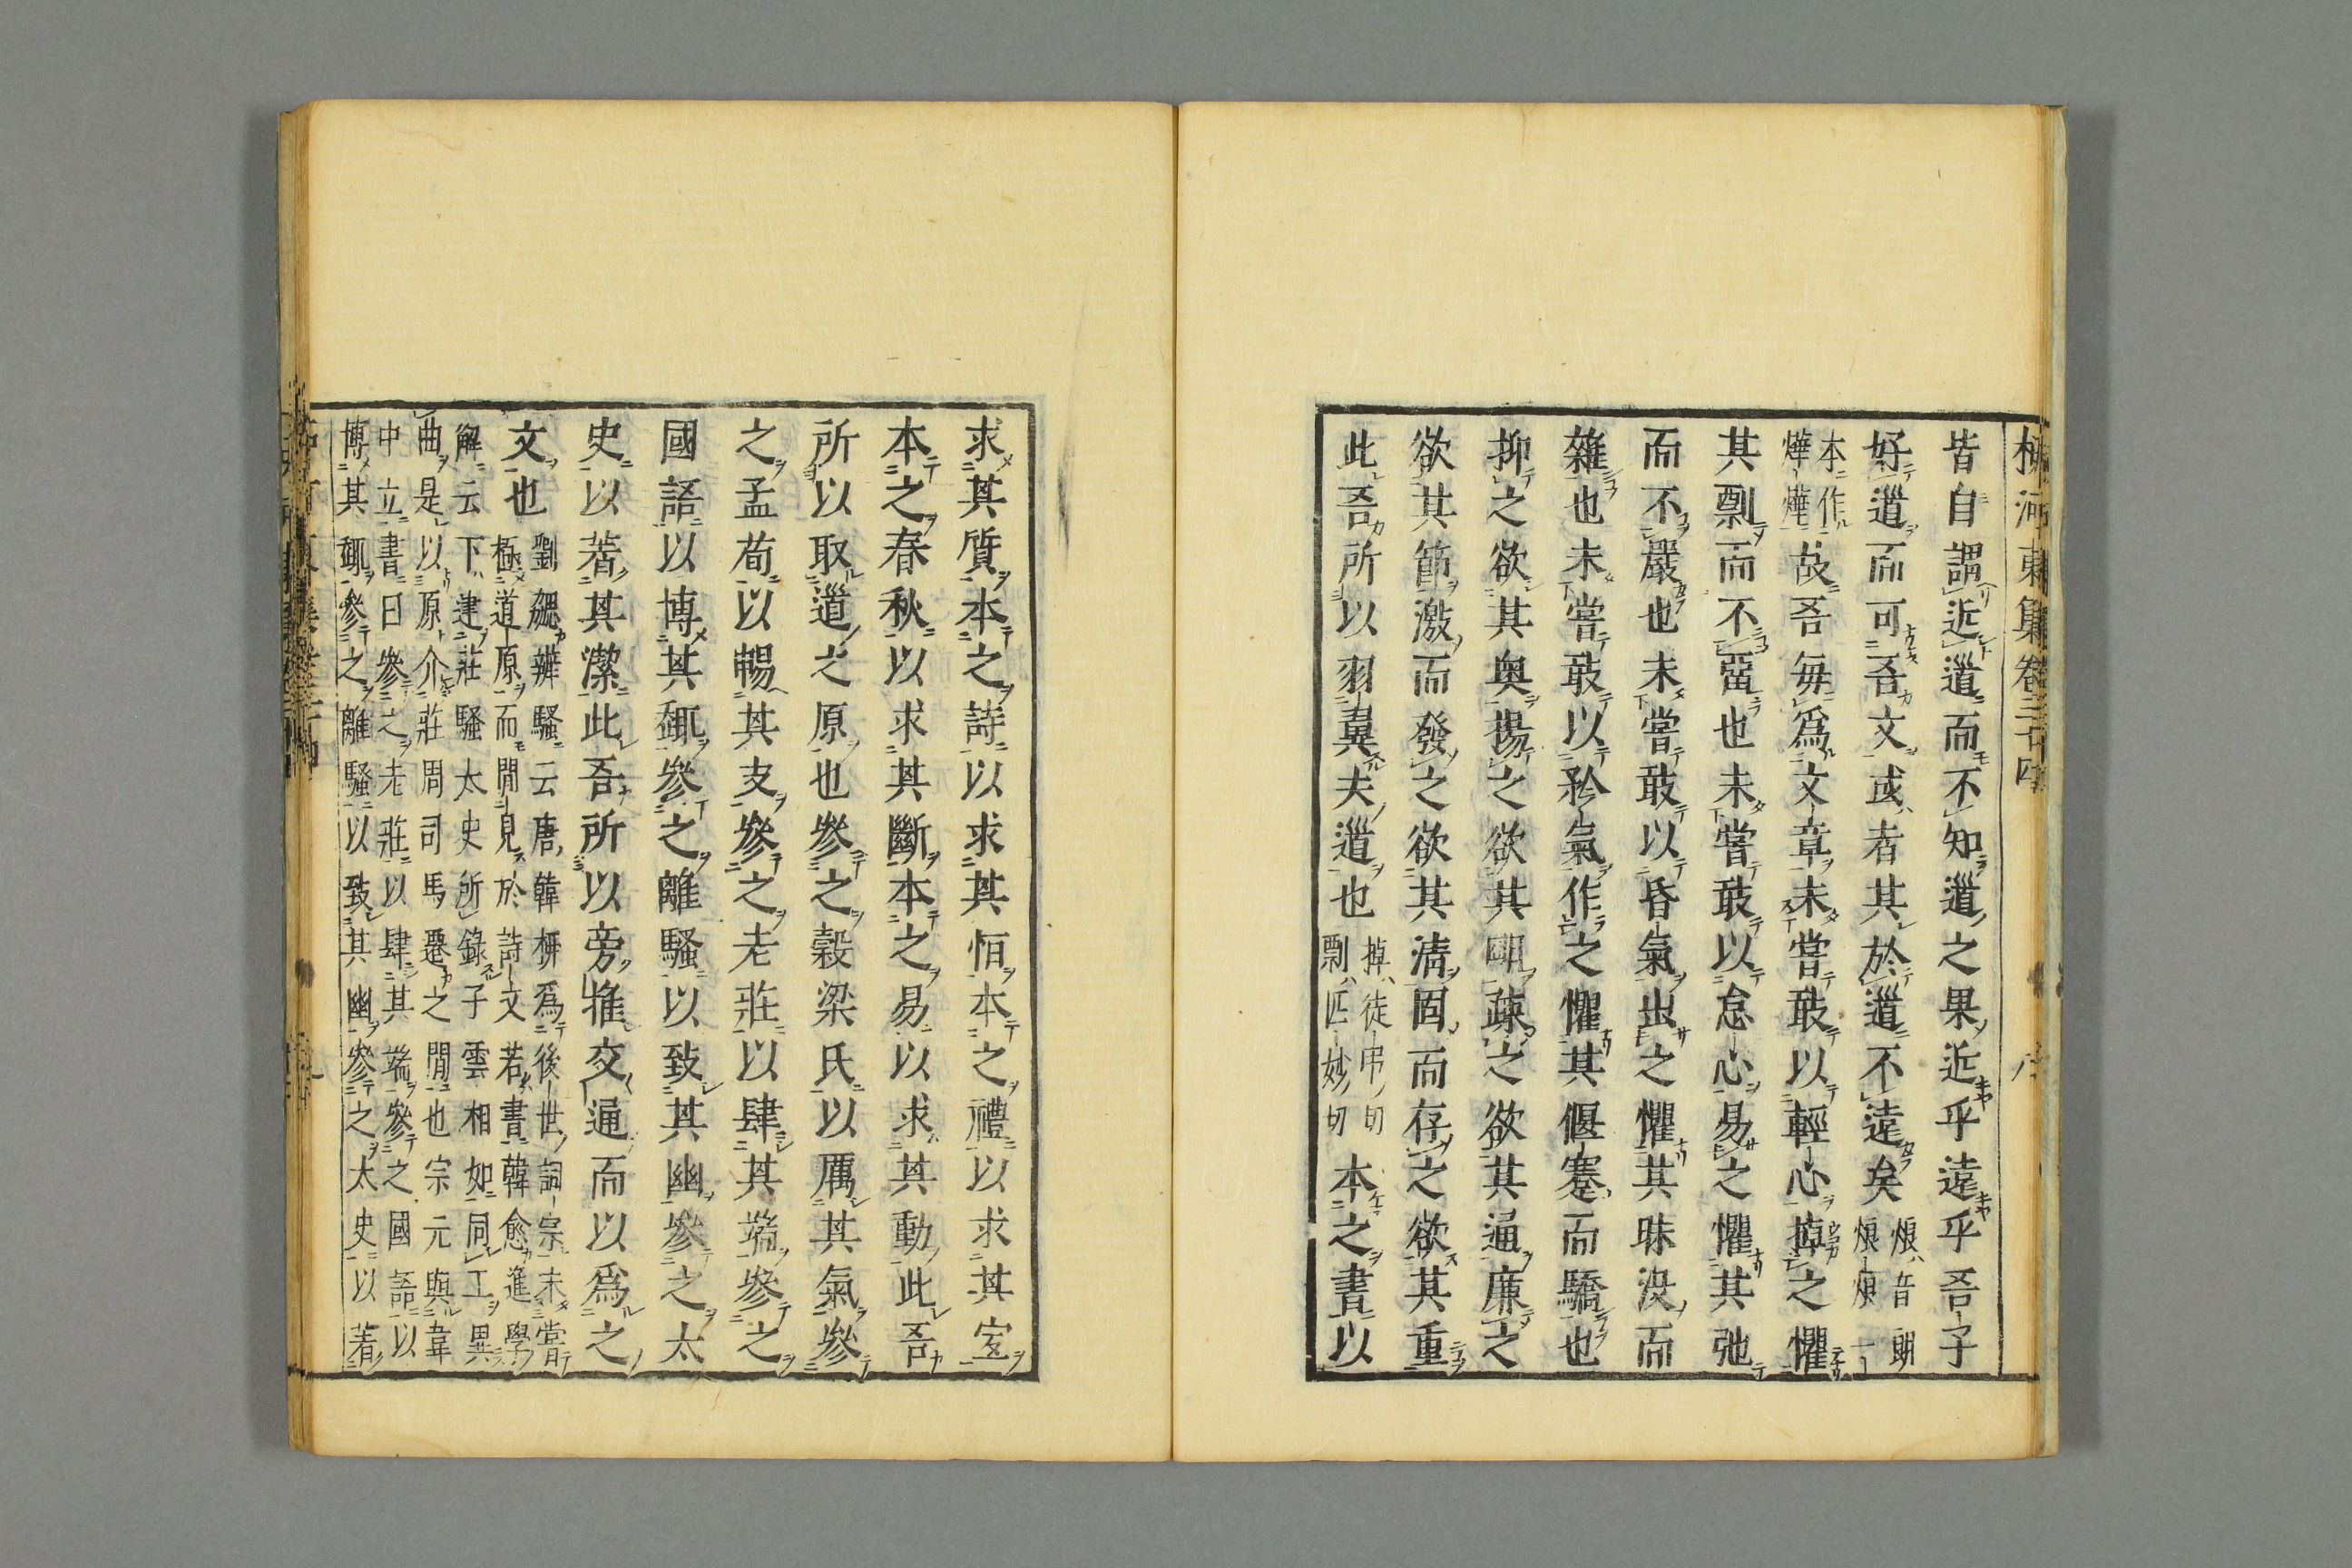 柳河東集卷三十四 八
皆自謂近道而不知道之果近乎遠乎吾子
好道而可吾文或者其於道不遠矣
烺音朗一
本作
燁燁
故吾每爲文章未嘗敢以輕心掉之懼
其剽而不畱也未嘗敢以怠心易之懼其弛
而不嚴也未嘗敢以昏氣出之懼其昧沒而
雜也未嘗敢以矜氣作之懼其偃蹇而驕也
抑之欲其奥揚之欲其明疎之欲其通廉之
欲其節激而發之欲其清固而存之欲其重
此吾所以羽翼夫道也
掉徒弔切
剽匹妙切
本之書以
求其質本之詩以求其恒本之禮以求其宐
本之春秋以求其斷本之易以求其動此吾
所以取道之原也參之穀梁氏以厲其氣參
之孟荀以暢其支參之老莊以肆其端參之
國語以博其趣參之離騷以致其幽參之太
史以著其潔此吾所以旁推交通而以爲之
文也
劉勰辨騷云唐韓柳爲後世詞宗未嘗
極道原而閒見於詩文若書韓愈進學
解云下逮莊騷太史所錄子雲相如同工異
曲是以原介莊周司馬遷之閒也宗元與韋
中立書曰參之老莊以肆其端參之國語以
博其趣參之離騷以致其幽參之太史以著